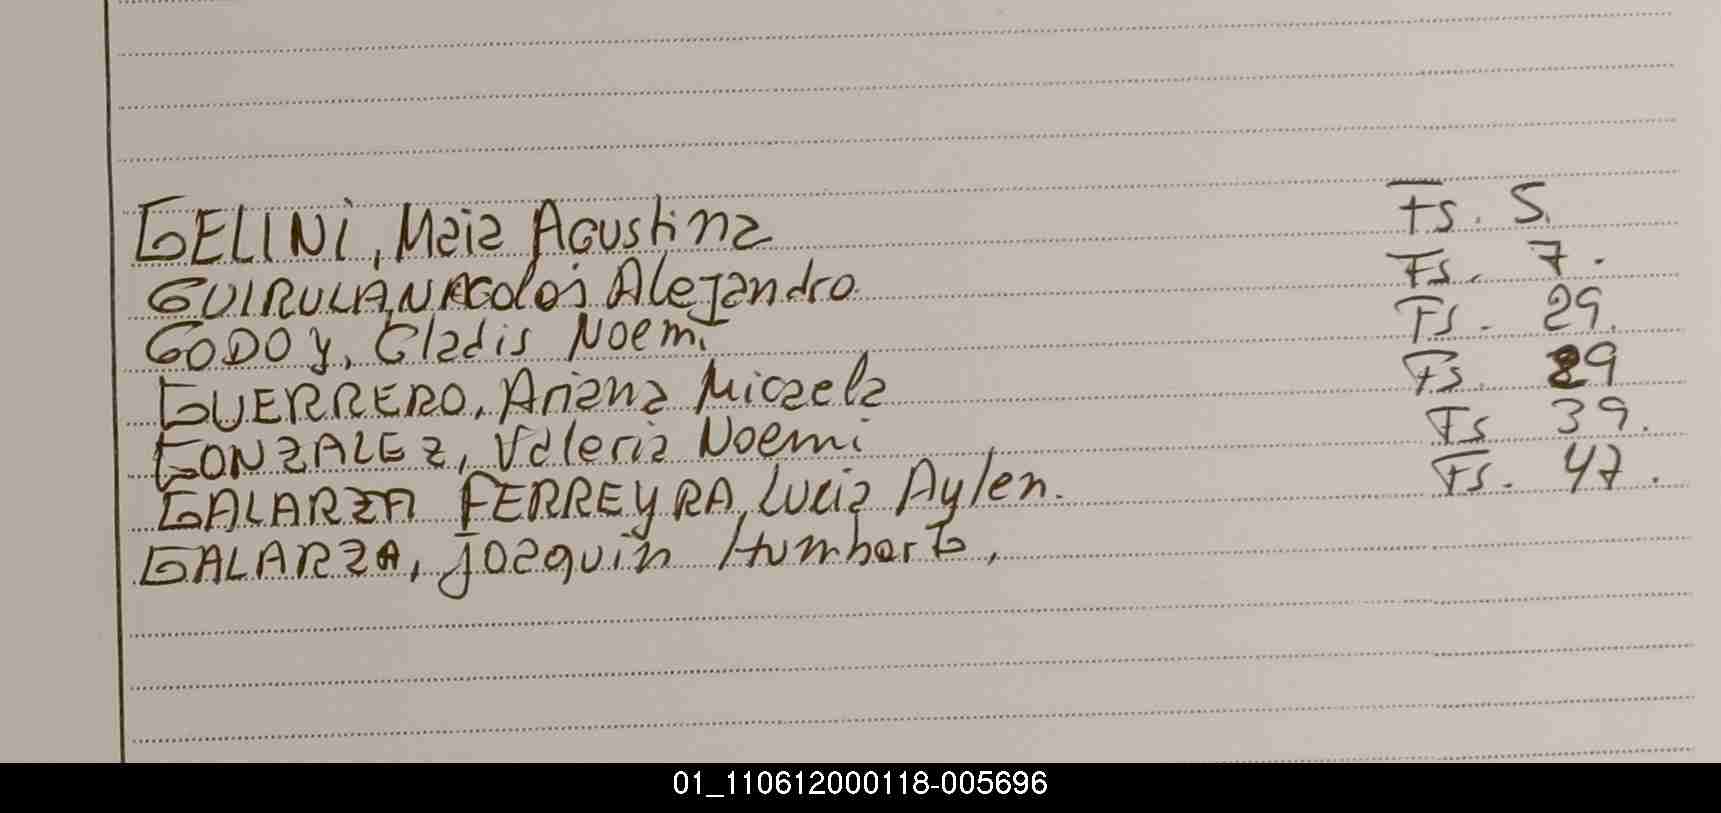 GELINI, Maia Agustina Fs. 5.
GUIRULA, Nicolas Alejandro. Fs. 7.
GODOY, Gladis Noemi Fs. 29.
GUERRERO, Ariana Micaela Fs. 29
GONZALEZ, Valeria Noemi Fs 39.
GALARZA FERREYRA, Lucia Aylen. Fs. 47.
GALARZA, Joaquin Humberto,
01_110612000118-005696